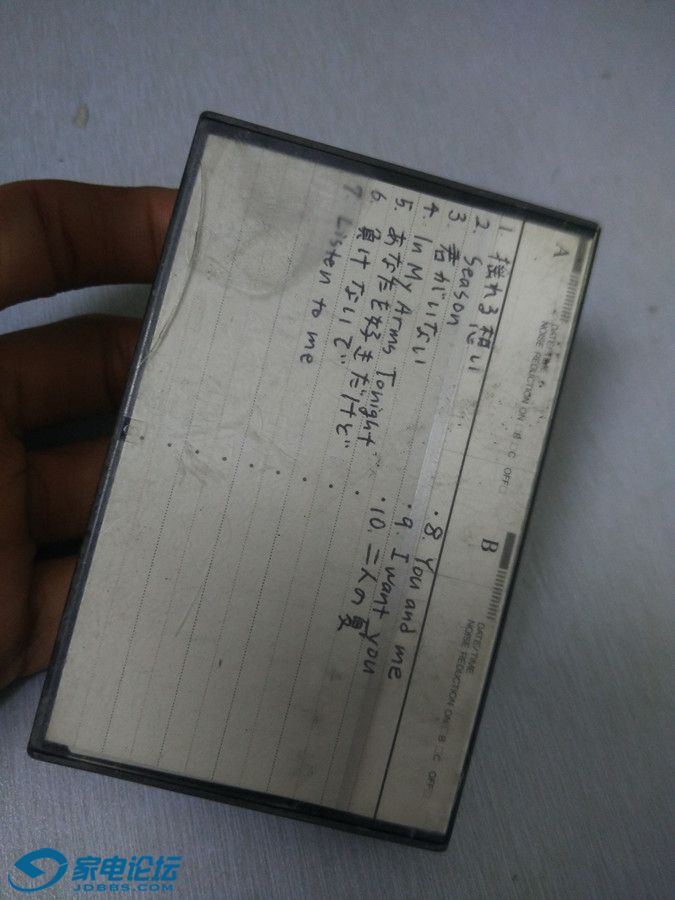 A
DATE/TIME
NOISE REDUCTION ON □B □C OFF□
1. 揺れる想い
2. Season
3. 君がいない
4. In My Arms Tonight
5. あなたを好きだけど
6. 負けないで
7. Listen to me
B
DATE/TIME
NOISE REDUCTION ON □B □C OFF□
・8. You and me
・9. I want you
・10. 二人の夏
家电论坛
JDBBS.COM